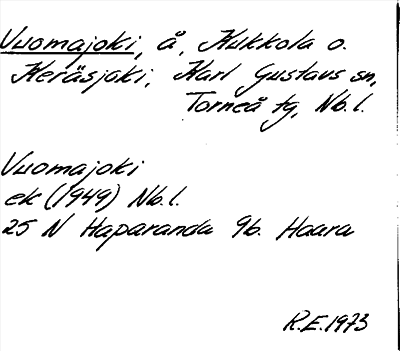 Vuomajoki, å, Kukkola o.
Keräsjoki, Karl Gustavs sn,
Torneå tg, Nb.l.
Vuomajoki
ek (1949) Nb.l.
25 N Haparanda 9b. Haara
R.E.1973